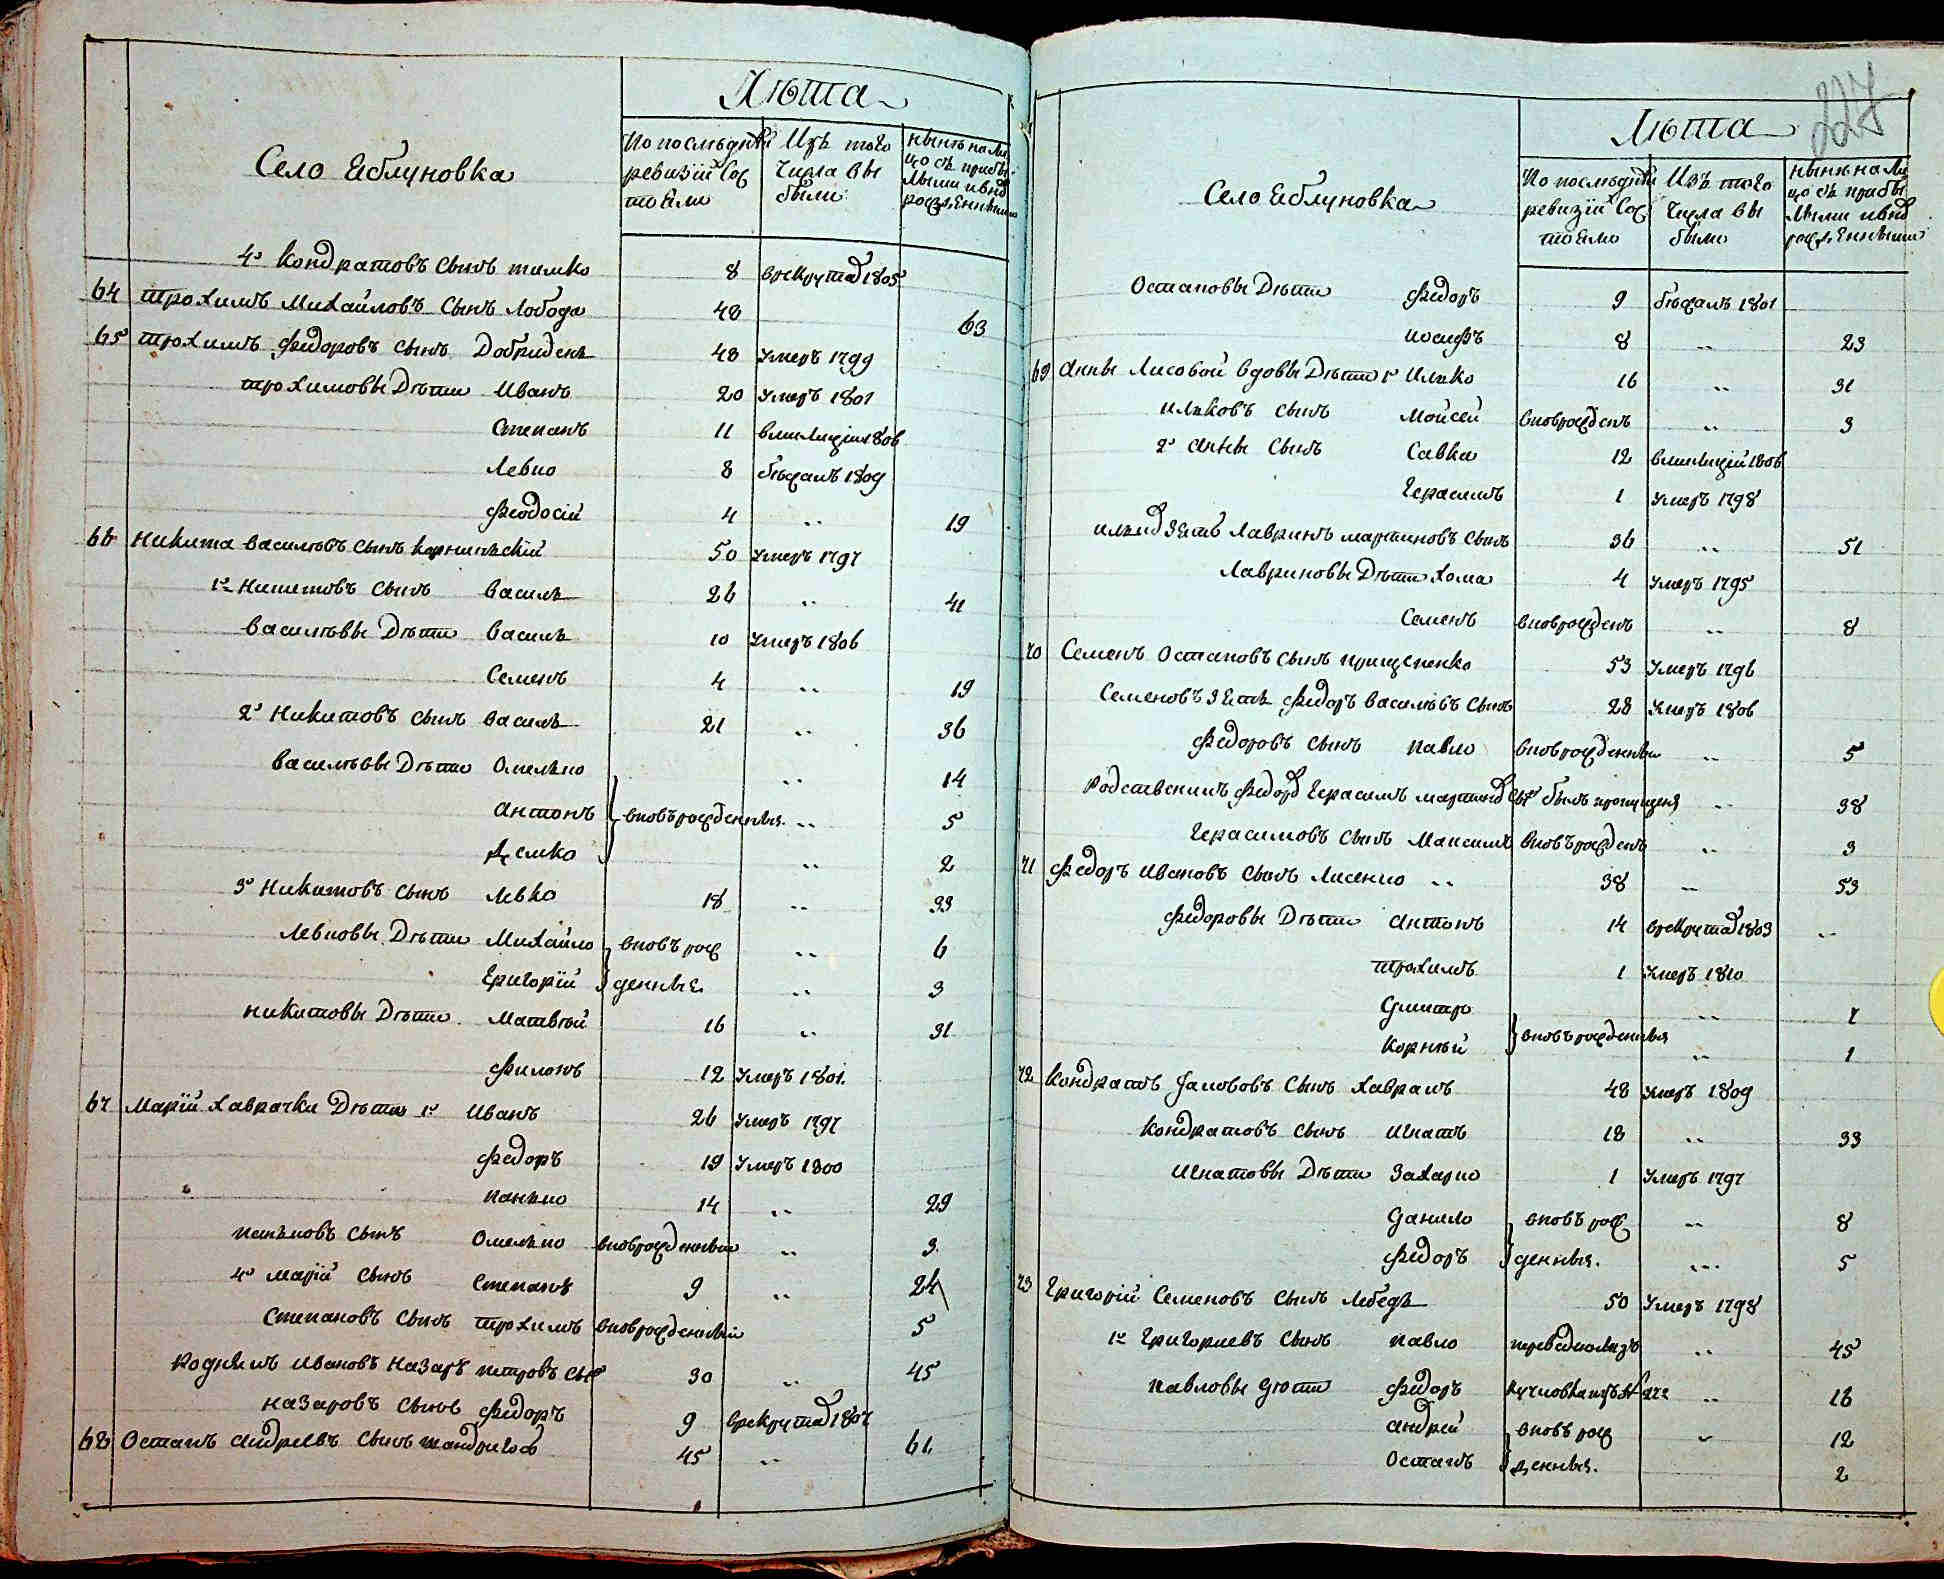 Лѣта
Село Яблуновка
По последней ревизіи состояло
Изъ того числа выбыло
Нынѣ на лицо съ прибылыми и вновь рожденными
4й Кондратовъ сынъ тимко 8 в рекруты 1805
64 трохимъ Михайловъ сынъ Лобода 48 63
65 трохимъ Федоровъ сынъ Добридень 48 умеръ 1799
трохимовы Дѣти Иванъ 20 умеръ 1801
Степанъ 11 в милицію 1806
Левко 8 бѣжалъ 1809
Феодосій 4 .. 19
66 Никита василювъ сынъ корнинскій 50 умеръ 1797
1й Никитовъ сынъ василь 26 .. 41
василювы Дѣти василь 10 умеръ 1806
Семенъ 4 .. 19
2й Никитовъ сынъ василь 21 .. 36
василювы Дѣти Омелько .. 14
антонъ вновърожденныя .. 5
Демко .. 2
3й Никитовъ сынъ Левко 18 .. 33
Левковы Дѣти Михайло вновъ рож .. 6
Григорій денныя .. 3
никитовы Дѣти Матвѣй 16 .. 31
Филонъ 12 умеръ 1801.
67 Маріи хаврачки Дѣти 1й Иванъ 26 умеръ 1797
Федоръ 19 умеръ 1800
панько 14 .. 29
панковъ сынъ Омелько вноврожденный .. 3
4й маріи сынъ Степанъ 9 .. 24
Степановъ сынъ трохимъ вноврожденный 5
Родичъ Ивановъ Назаръ петровъ сынъ 30 .. 45
Назаровъ сынъ Федоръ 9 в рекруты 1807
68 Остапъ андреевъ сынъ мандрига 45 .. 61
227
Лѣта
Село Яблуновка
По последней ревизіи состояло
Изъ того числа выбыло
Нынѣ на лицо съ прибылыми и вновь рожденными
Остаповы Дѣти Федоръ 9 бѣжалъ 1801
иосифъ 8 .. 23
69 Анны Лисовой вдовы Дѣти 1й Илько 16 .. 31
илковъ сынъ Мойсей вноврожденъ .. 3
2й анны сынъ Савка 12 в милицій 1806
Герасимъ 1 умеръ 1798
зять Лавринъ мартиновъ сынъ 36 .. 51
Лавриновы Дѣти хома 4 умеръ 1795
Семенъ вноврожденъ .. 8
70 Семенъ Остаповъ сынъ прищепенко 53 умеръ 1796
Семеновъ зять Федоръ василювъ сынъ 28 умеръ 1806
Федоровъ сынъ павло вноврожденный .. 5
Родственикъ Федора Герасимъ мартинов сын былъ пропущенъ .. 38
Герасимовъ сынъ Максимъ вновърожденъ .. 3
71 Федоръ ивановъ сынъ Лисенко .. 38 .. 53
Федоровы Дѣти антонъ 14 в рекруты 1803 ..
трохимъ 1 умеръ 1810
Дмитро .. 7
Корнѣй вновърожденныя .. 1
72 Кондратъ Якововъ сынъ хаврачъ 48 умеръ 1809
Кондратовъ сынъ Игнатъ 18 .. 33
Игнатовы Дѣти Захарко 1 умеръ 1797
Данило вновъ рож .. 8
Федоръ денныя. ... 5
73 Григорій Семеновъ сынъ Лебедь 50 умеръ 1798
1й Григориевъ сынъ павло .. 45
павловы дѣти Федоръ .. 18
андрей вновъ рож .. 12
Остапъ денныя. 2